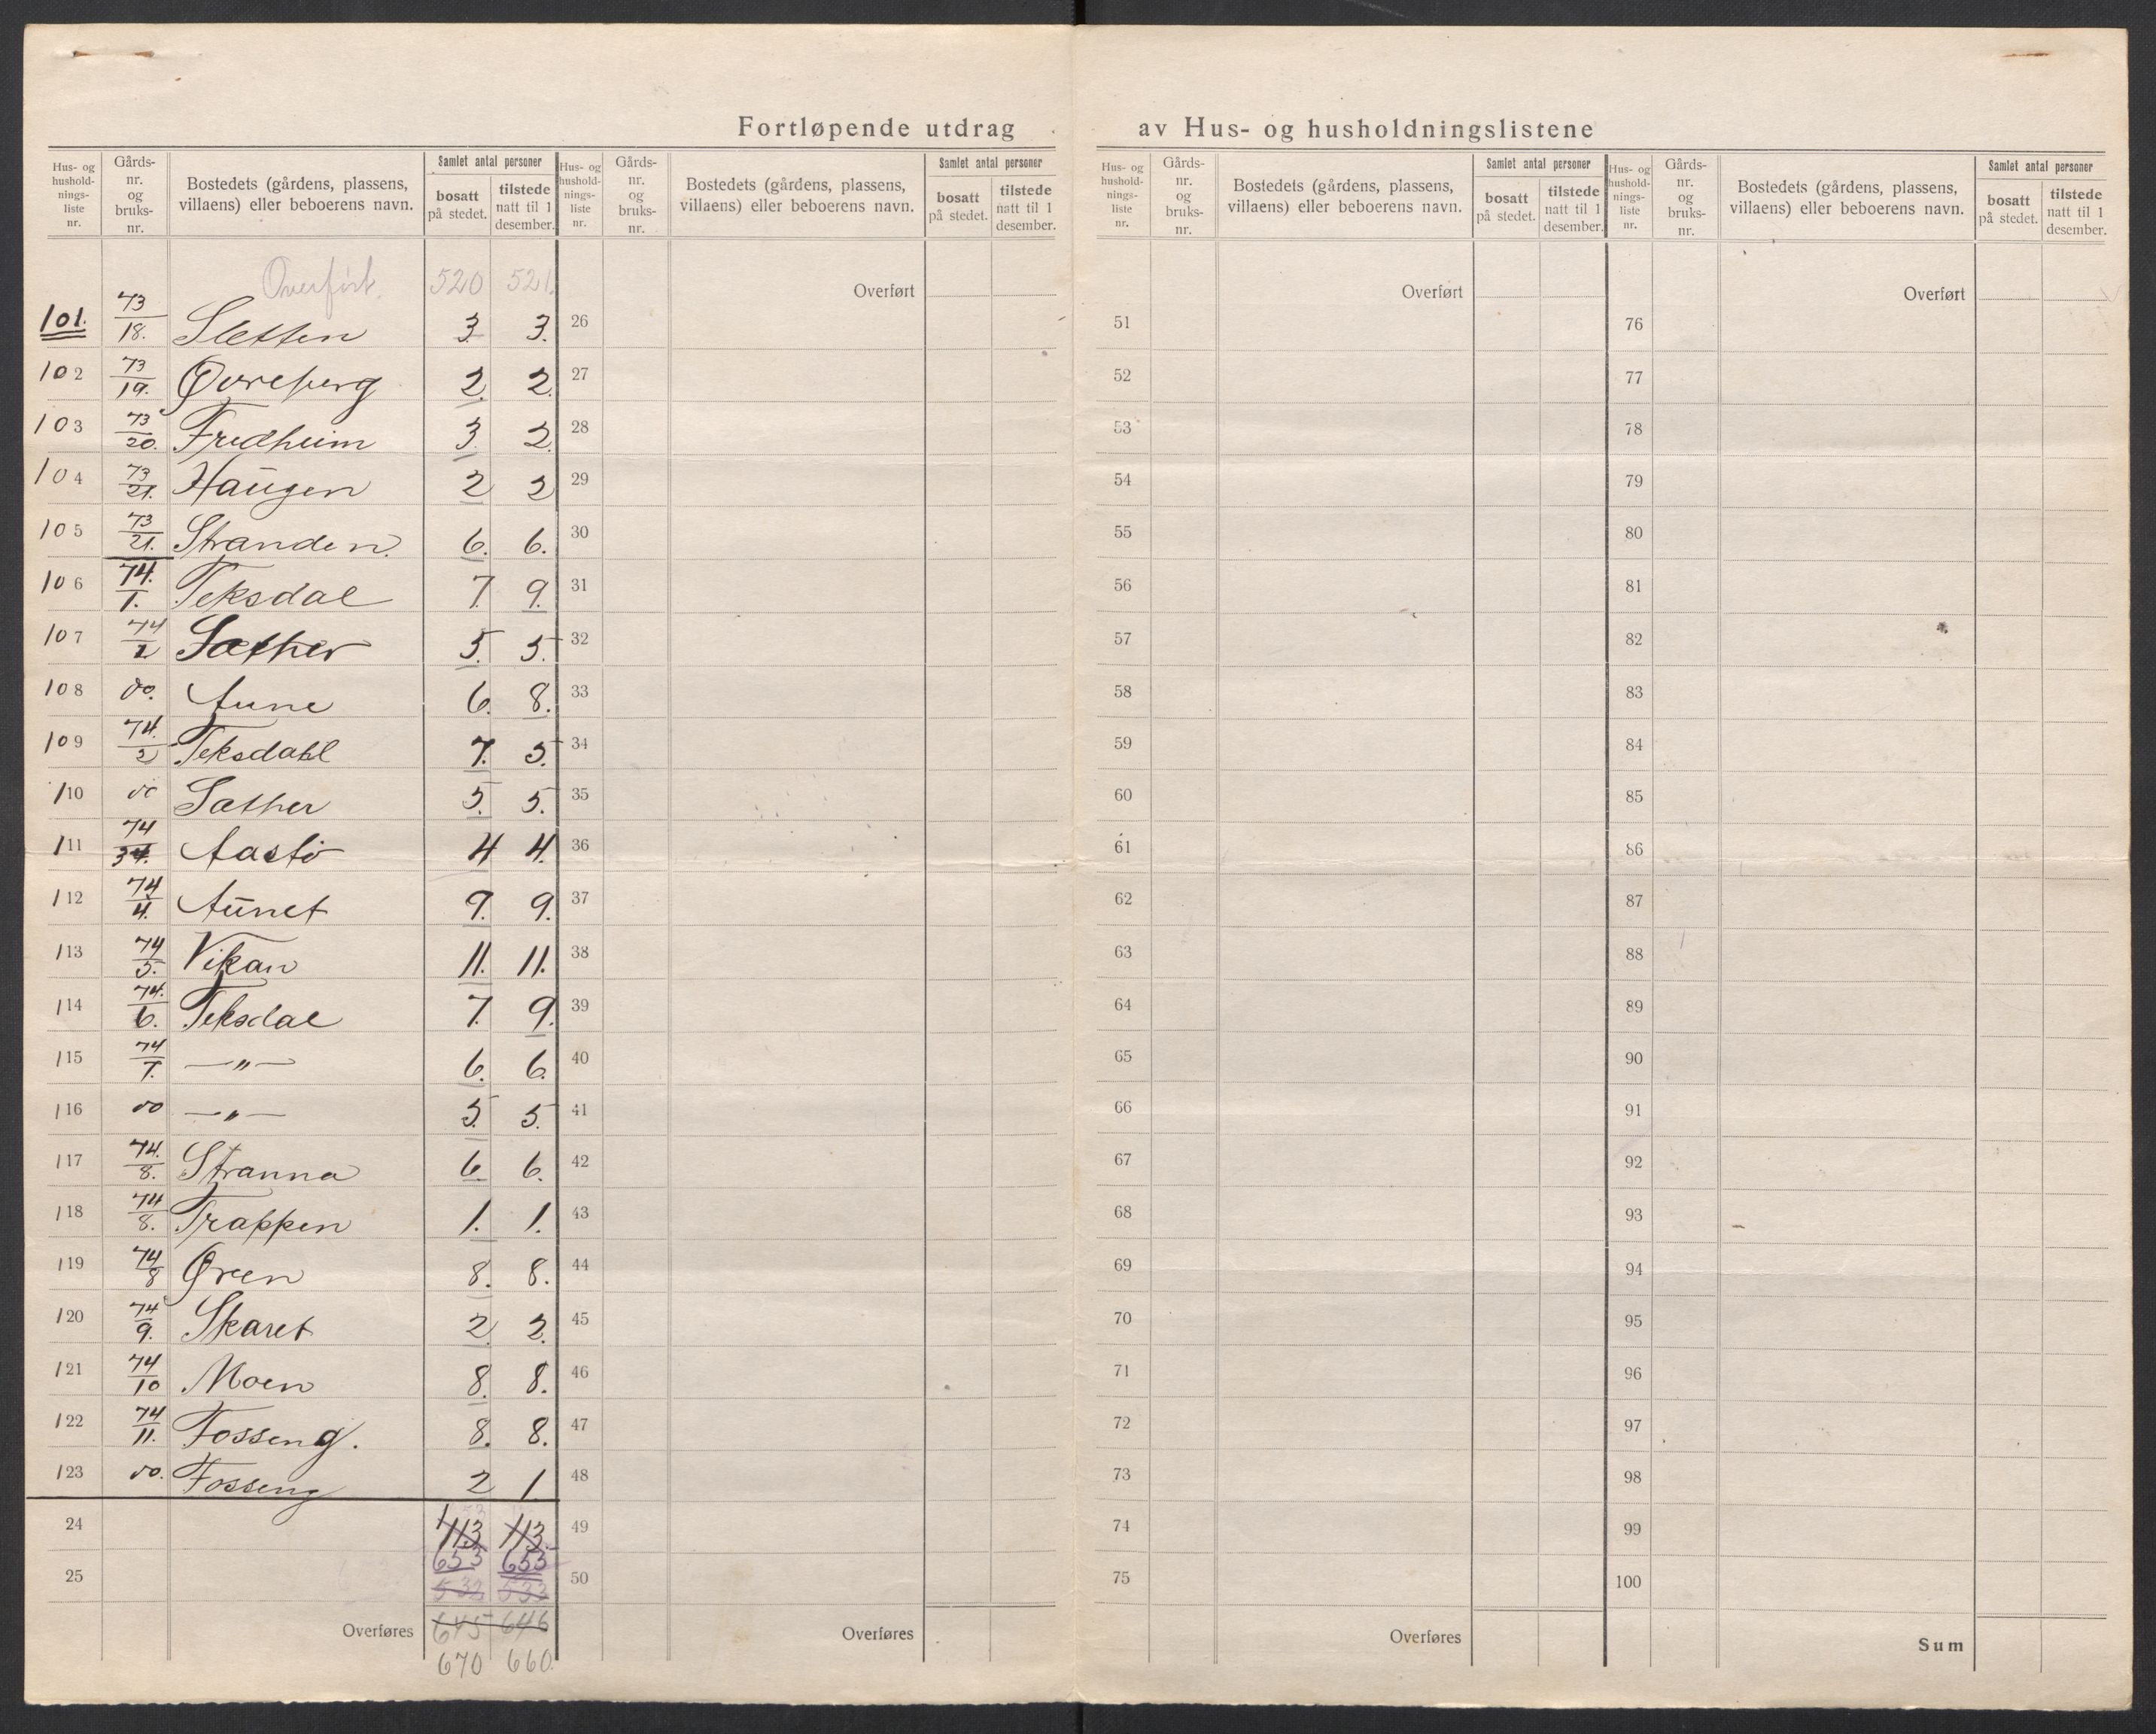 Fortløpende utdrag av Hus- og husholdningslistene
Hus- og husholdnings- liste nr. | Gårds- nr. og bruks- nr. | Bostedets (gårdens, plassens, villaens) eller beboerens navn. | Samlet antal personer | bosatt på stedet. | tilstede natt til 1 desember.
Hus- og husholdnings- liste nr. | Gårds- nr. og bruks- nr. | Bostedets (gårdens, plassens, villaens) eller beboerens navn. | Samlet antal personer | bosatt på stedet. | tilstede natt til 1 desember.
Hus- og husholdnings- liste nr. | Gårds- nr. og bruks- nr. | Bostedets (gårdens, plassens, villaens) eller beboerens navn. | Samlet antal personer | bosatt på stedet. | tilstede natt til 1 desember.
Hus- og husholdnings- liste nr. | Gårds- nr. og bruks- nr. | Bostedets (gårdens, plassens, villaens) eller beboerens navn. | Samlet antal personer | bosatt på stedet. | tilstede natt til 1 desember.
Overført. 520 521. Overført Overført Overført
101. 73/18. Sletten 3. 3. 26 51 76
102 73/19. Øvreberg 2. 2. 27 52 77
103 73/20. Fredheim 3. 2. 28 53 78
104 73/21. Haugen 2 2 29 54 79
105 73/21. Stranden. 6. 6. 30 55 80
106 74./1. Teksdal 7. 9. 31 56 81
107 74/1 Sæther 5. 5. 32 57 82
108 do. Aune 6. 8. 33 58 83
109 74./2 Teksdahl 7. 5. 34 59 84
110 do Sæther 5. 5. 35 60 85
111 74/3 Aastø 4 4. 36 61 86
112 74/4. Aunet 9. 9. 37 62 87
113 74/5. Vikan 11. 11. 38 63 88
114 74./6. Teksdal 7. 9. 39 64 89
115 74/7. —"— 6. 6. 40 65 90
116 do —"— 5. 5. 41 66 91
117 74./8. Stranna 6. 6. 42 67 92
118 74/8. Trappen 1. 1. 43 68 93
119 74/8 Øren 8. 8. 44 69 94
120 74/9. Skaret 2. 2. 45 70 95
121 74/10 Moen 8. 8. 46 71 96
122 74/11. Fosseng. 8. 8. 47 72 97
123 do. Fosseng 2 1. 48 73 98
24 113 113. 49 74 99
653 653
25 532 533 50 75 100
Overføres 645 646 Overføres Overføres Sum
670 660.